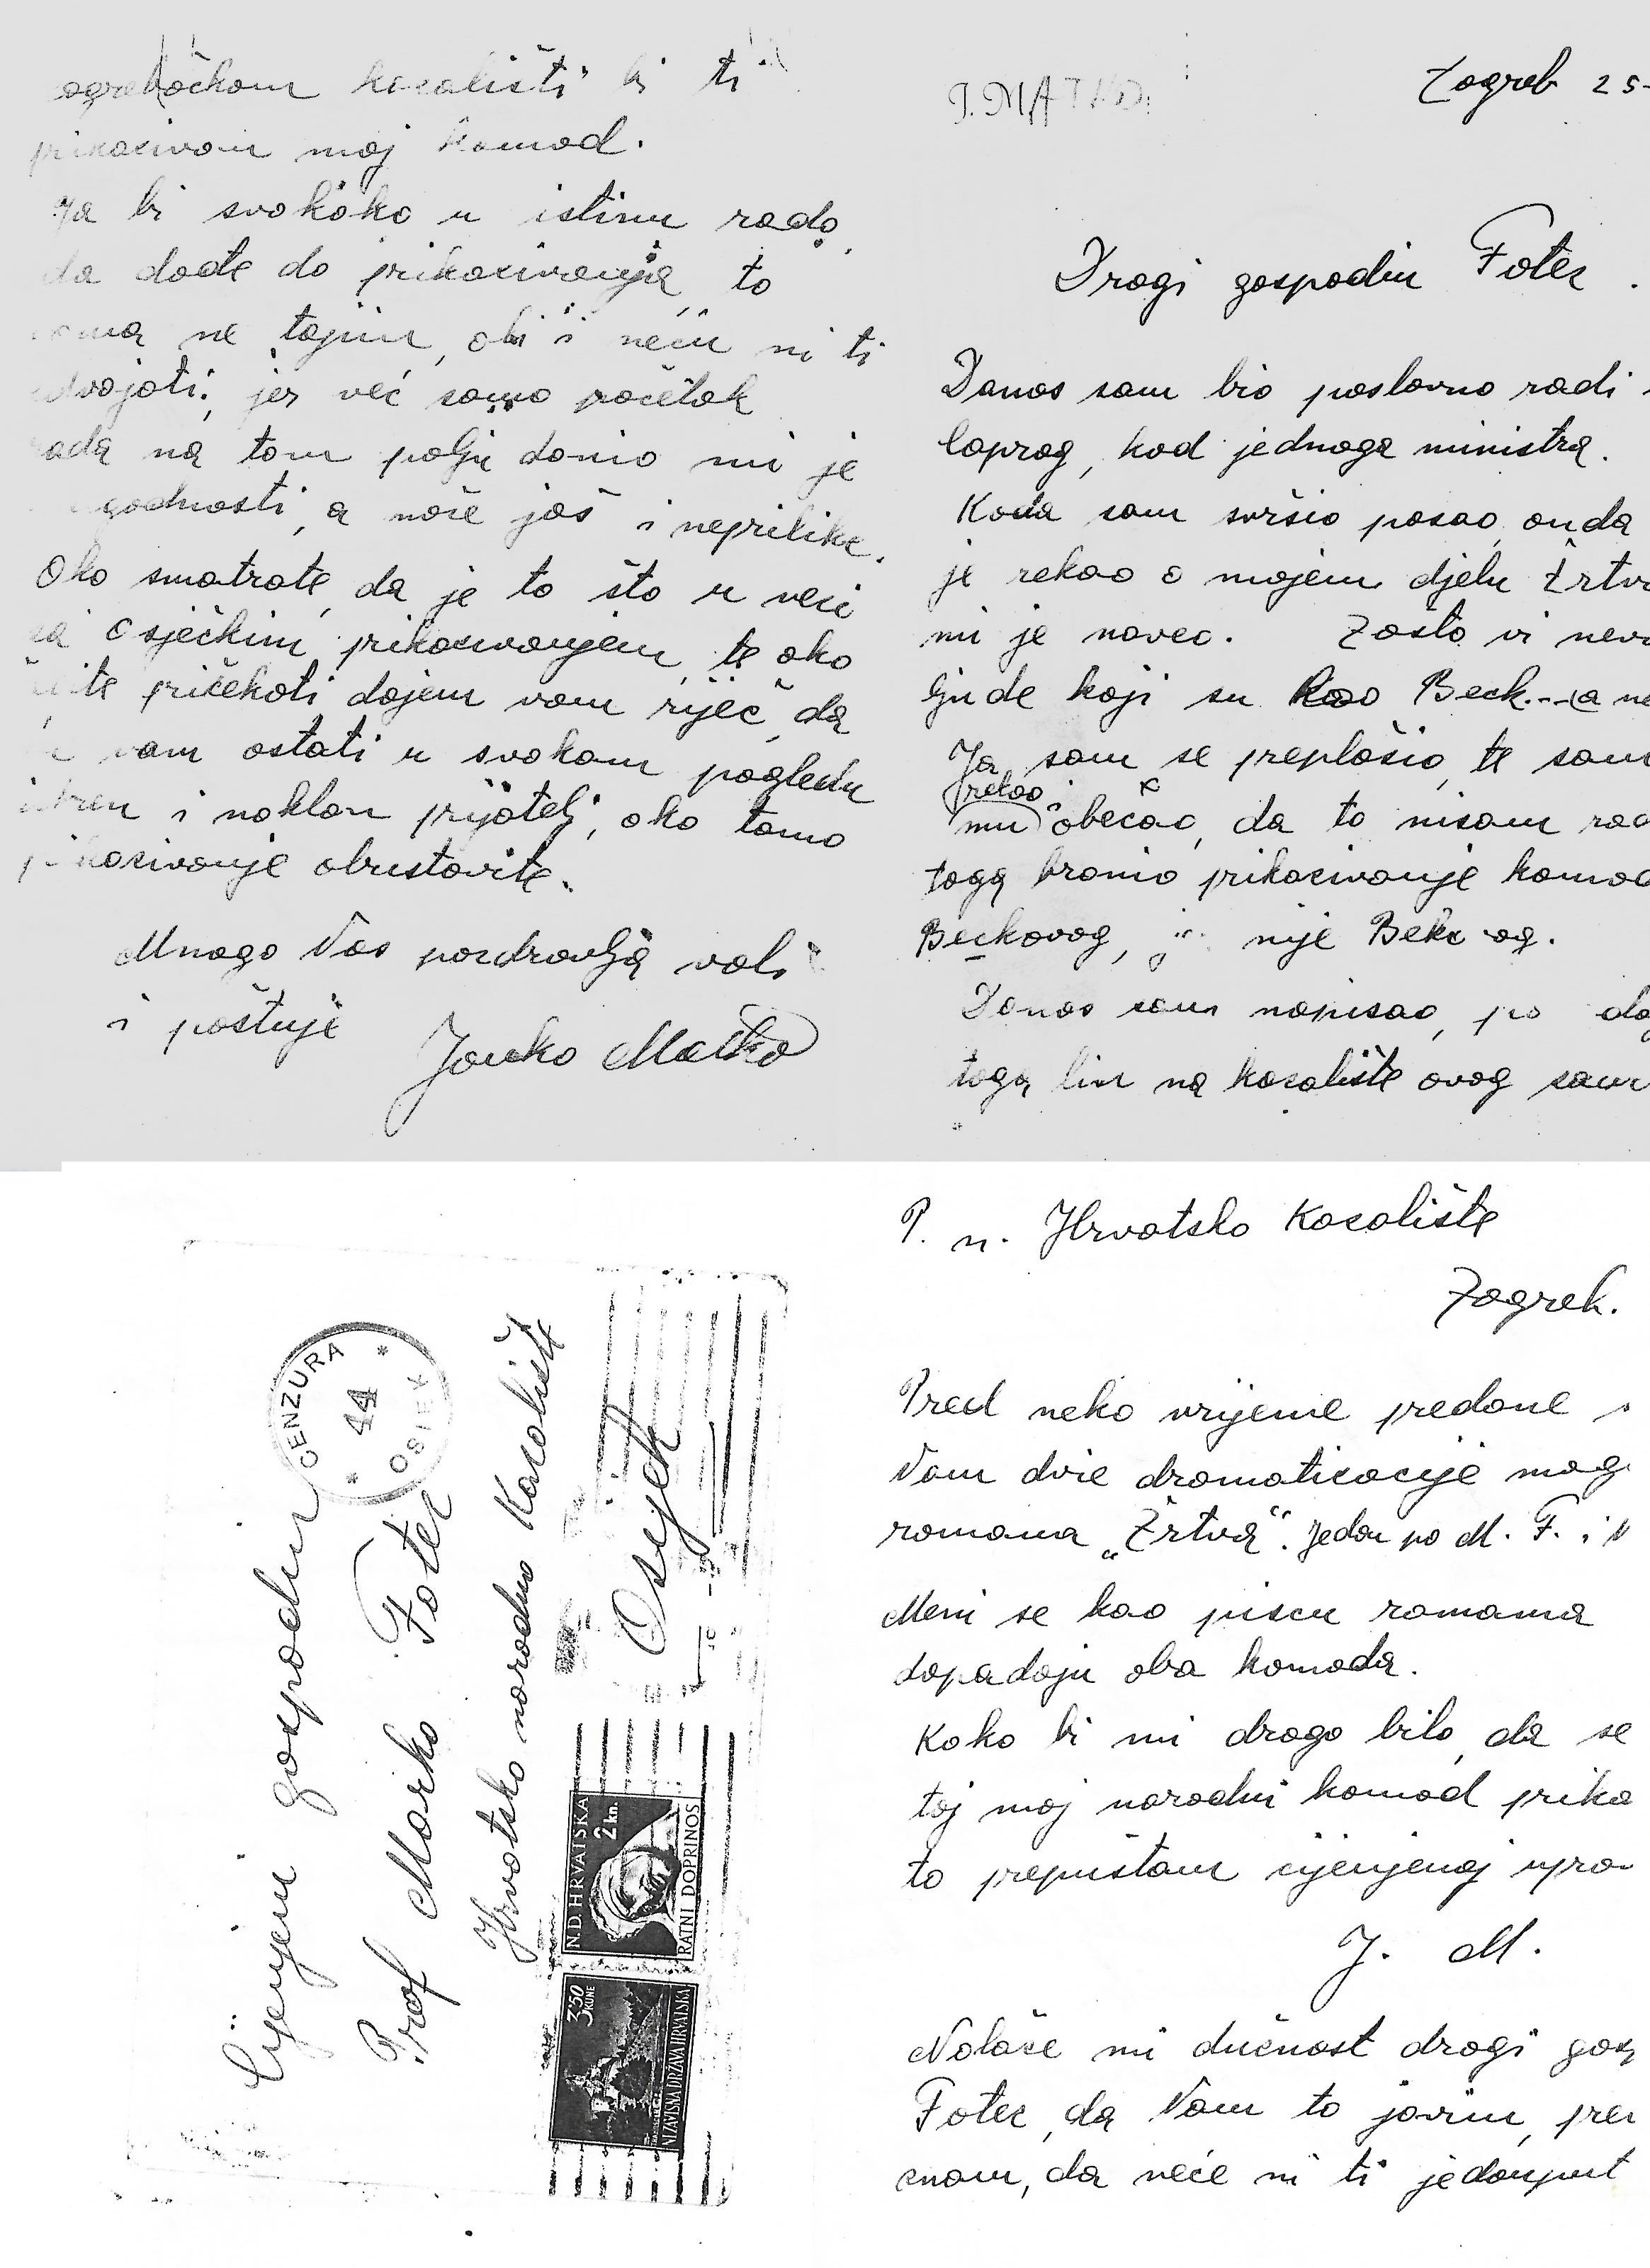 zagrebačkom kazalištu bi ti
prikazivan moj komad.
Ja bi svakako u istinu rado
da dođe do prikazivanja, to
vama ne tajim, ali i neću ni ti
dvojati, jer već samo početak
rada na tom polju donio mi je
a može još i neprilike.
Ako smatrate, da je to što u vezi
sa Osječkim prikazivanjem, te ako
pričekati dajem vam riječ, da
vam ostati u svakom pogledu
iskren i naklon prijatelj, ako tamo
prikazivanje obustavite.
Mnogo Vas pozdravlja voli
i poštuje Janko Matko
J. MATKO
Zagreb 25-
Dragi gospodin Fotez.
Danas sam bio poslovno radi
kod jednoga ministra.
Kada sam svršio posao, onda
je rekao o mojem djelu Žrtva
mi je naveo. Zašto vi
ljude koji su kao Beck...(a ne
Ja sam se preplašio, te sam
rekao
mu obećao, da to nisam
toga branio prikazivanje komad
Beckovog, nije
Danas sam napisao, po
toga lin na kazalište ovog
Cijenjeni gospodin
Prof Marko Fotez
Hrvatsko narodno Kazalište
Osijek
CENZURA
* 44 *
OSIEK
N.D. HRVATSKA
2 kn.
RATNI DOPRINOS
3'50
KUNE
NEZAVISNA DRŽAVA HRVATSKA
P. n. Hrvatsko Kazalište
Zagreb.
Pred neko vrijeme predane
Vam dvie dramatizacije mog
romana „Žrtva“. Jedan po M. F. i
Meni se kao piscu romana
dopadaju oba komada.
Kako bi mi drago bilo, da se
taj moj narodni komad prika
to prepuštam cijenjenoj upra
J. M.
Nalaže mi dužnost dragi gosp
Fotez, da Vam to javim, prem
znam, da neće ni ti jedanput